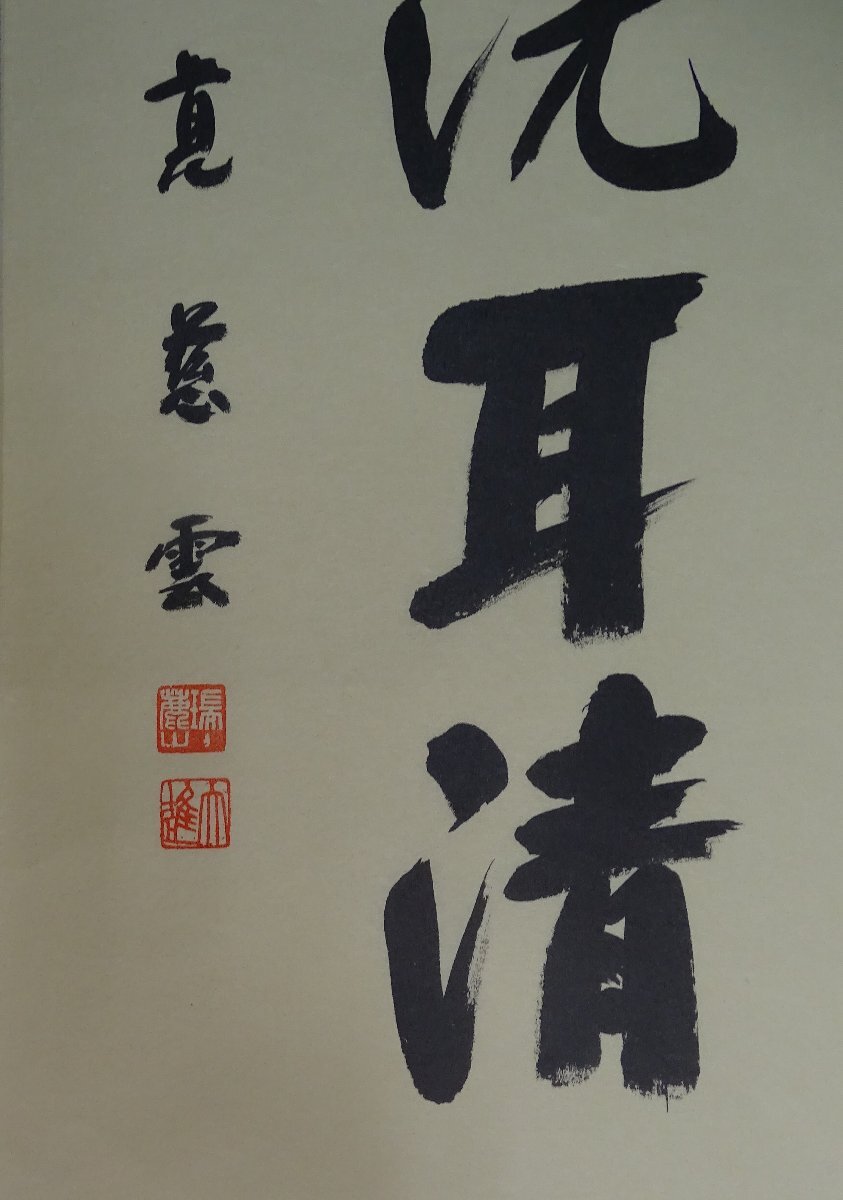 洗耳清
真慈雲